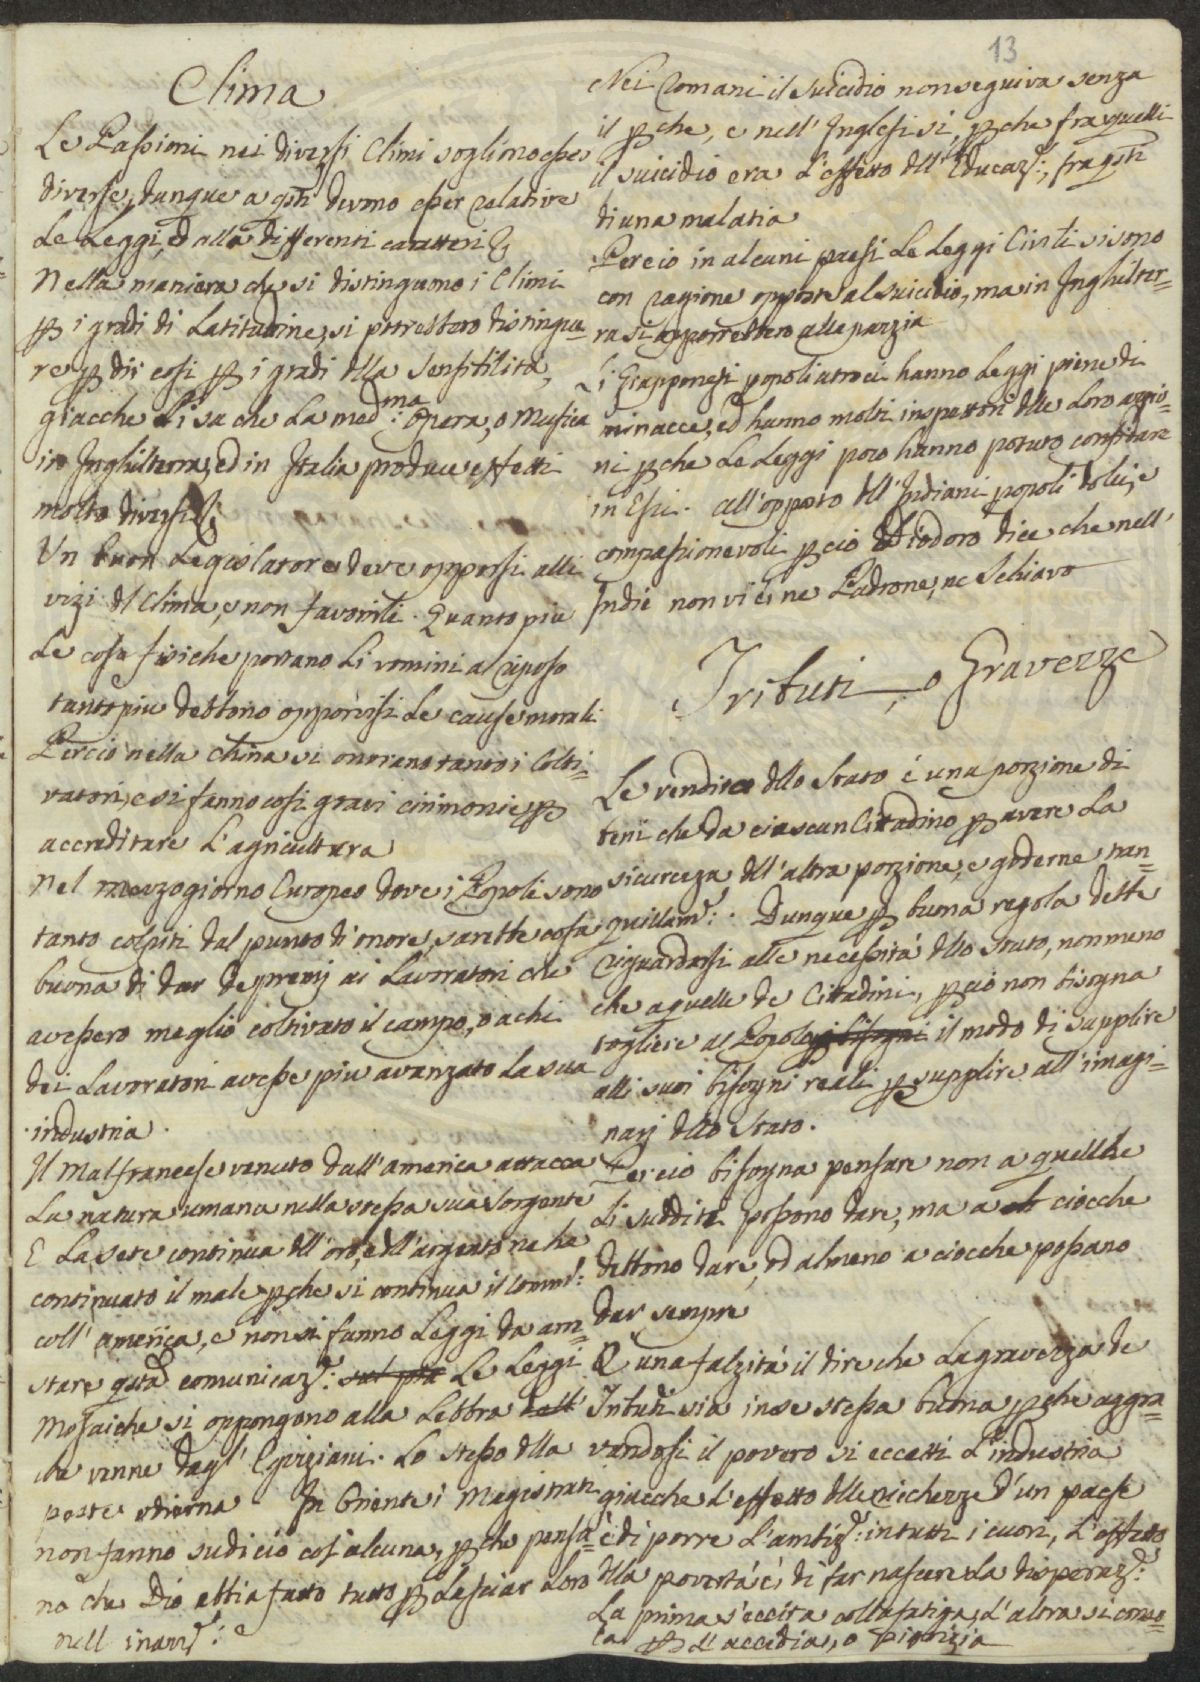 13
Clima
Le Passioni nei diversi Climi sogliono esser
diverse, dunque a qsti devono esser relative
Le Leggi, ed alla differenti caratteri &
Nella maniera che si distinguono i Climi
p i gradi di Latitudine, si potrebbero distingue=
re p dir cosi p i gradi dlla sensibilità,
giacche si sa che La med:ma Opera, o Musica
in Inghilterra, ed in Italia produce effetti
molto diversi
Un buon Legislatore deve opporsi alli
vizi dl Clima, e non favorirli. Quanto piu
Le cose fisiche portano Li uomini al riposo
tanto piu debbono opporvisi Le cause morali
Percio nella China si onorano tanto i Colti=
vatori, e si fanno cosi gravi cirimonie p
accreditare L'agricultura
Nel mezzogiorno Europeo dove i Popoli sono
tanto colpiti dal punto di onore, sarebbe cosa
buona di dar de premj ai Lavoratori che
avessero meglio coltivato il campo, o a chi
dei Lavoratori avesse piu avanzato La sua
industria.
Il Malfrancese venuto dall'america attacca
La natura umana nella stessa sua sorgente
E La sete continua dll'oro, e dll'argento ne ha
continuato il male pche si continua il Comm:
coll'america, e non si fanno Leggi da am=
stare qsta comunicaz: Le Leggi
Mosaiche si oppongono alla Lebbra
che venne dagl'Egiziani. Lo stesso dlla
peste odierna In Oriente i Magistrati
non fanno sudi cio cosa alcuna, pche pensa=
no che Dio abbia fatto tutto p Lasciar Loro
nell inaz:e
Nei Romani il suicidio non seguiva senza
il pche, e nell'Inglesi si, pche fra quelli
il suicidio era L'effetto dll'Educaz:, fra qsti
di una malatia
Percio in alcuni paesi Le Leggi Civili si sono
con ragione opposte al suicidio, ma in Inghilter=
ra si opporrebbero alla pazzia
Li Giapponesi popoli atroci hanno Leggi piene di
minacce, ed hanno molti inspettori dlle Loro azzio=
ni pche Le Leggi poco hanno potuto confidare
in Essi. all'opposto dll'Indiani popoli dolci, e
compassionevoli pcio Diodoro dice che nell'
Indie non vi è, ne Padrone, ne Schiavo
Tributi, o Gravezze
Le rendite dllo Stato è una porzione di
beni che da ciascun Cittadino p avere La
sicurezza dll'altra porzione, e goderne tran=
quillam:. Dunque p buona regola dette
riguardarsi alle necessità dllo Stato, non meno
che a quelle de Cittadini, pcio non bisogna
togliere al Popolo p bisogni il modo di supplire
alli suoi bisogni reali p supplire all'imagi=
narj dllo Stato.
Percio bisogna pensare non a quelche
Li sudditi possono dare, ma a ciocche
debbono dare, od almeno a ciocche possano
dar sempre
E una falzità il dire che La gravezza de
Tributi sia in se stessa buona pche aggra=
vandosi il povero si eccetti L'industria
giacche L'effetto dlle ricchezze d'un paese
è di porre L'ambiz: in tutti i cuori, L'effetto
dlla povertà è, di far nascere La disperaz:
La prima s'eccita colla fatiga, L'altra si conso=
la p L'accidia, o pigrizia